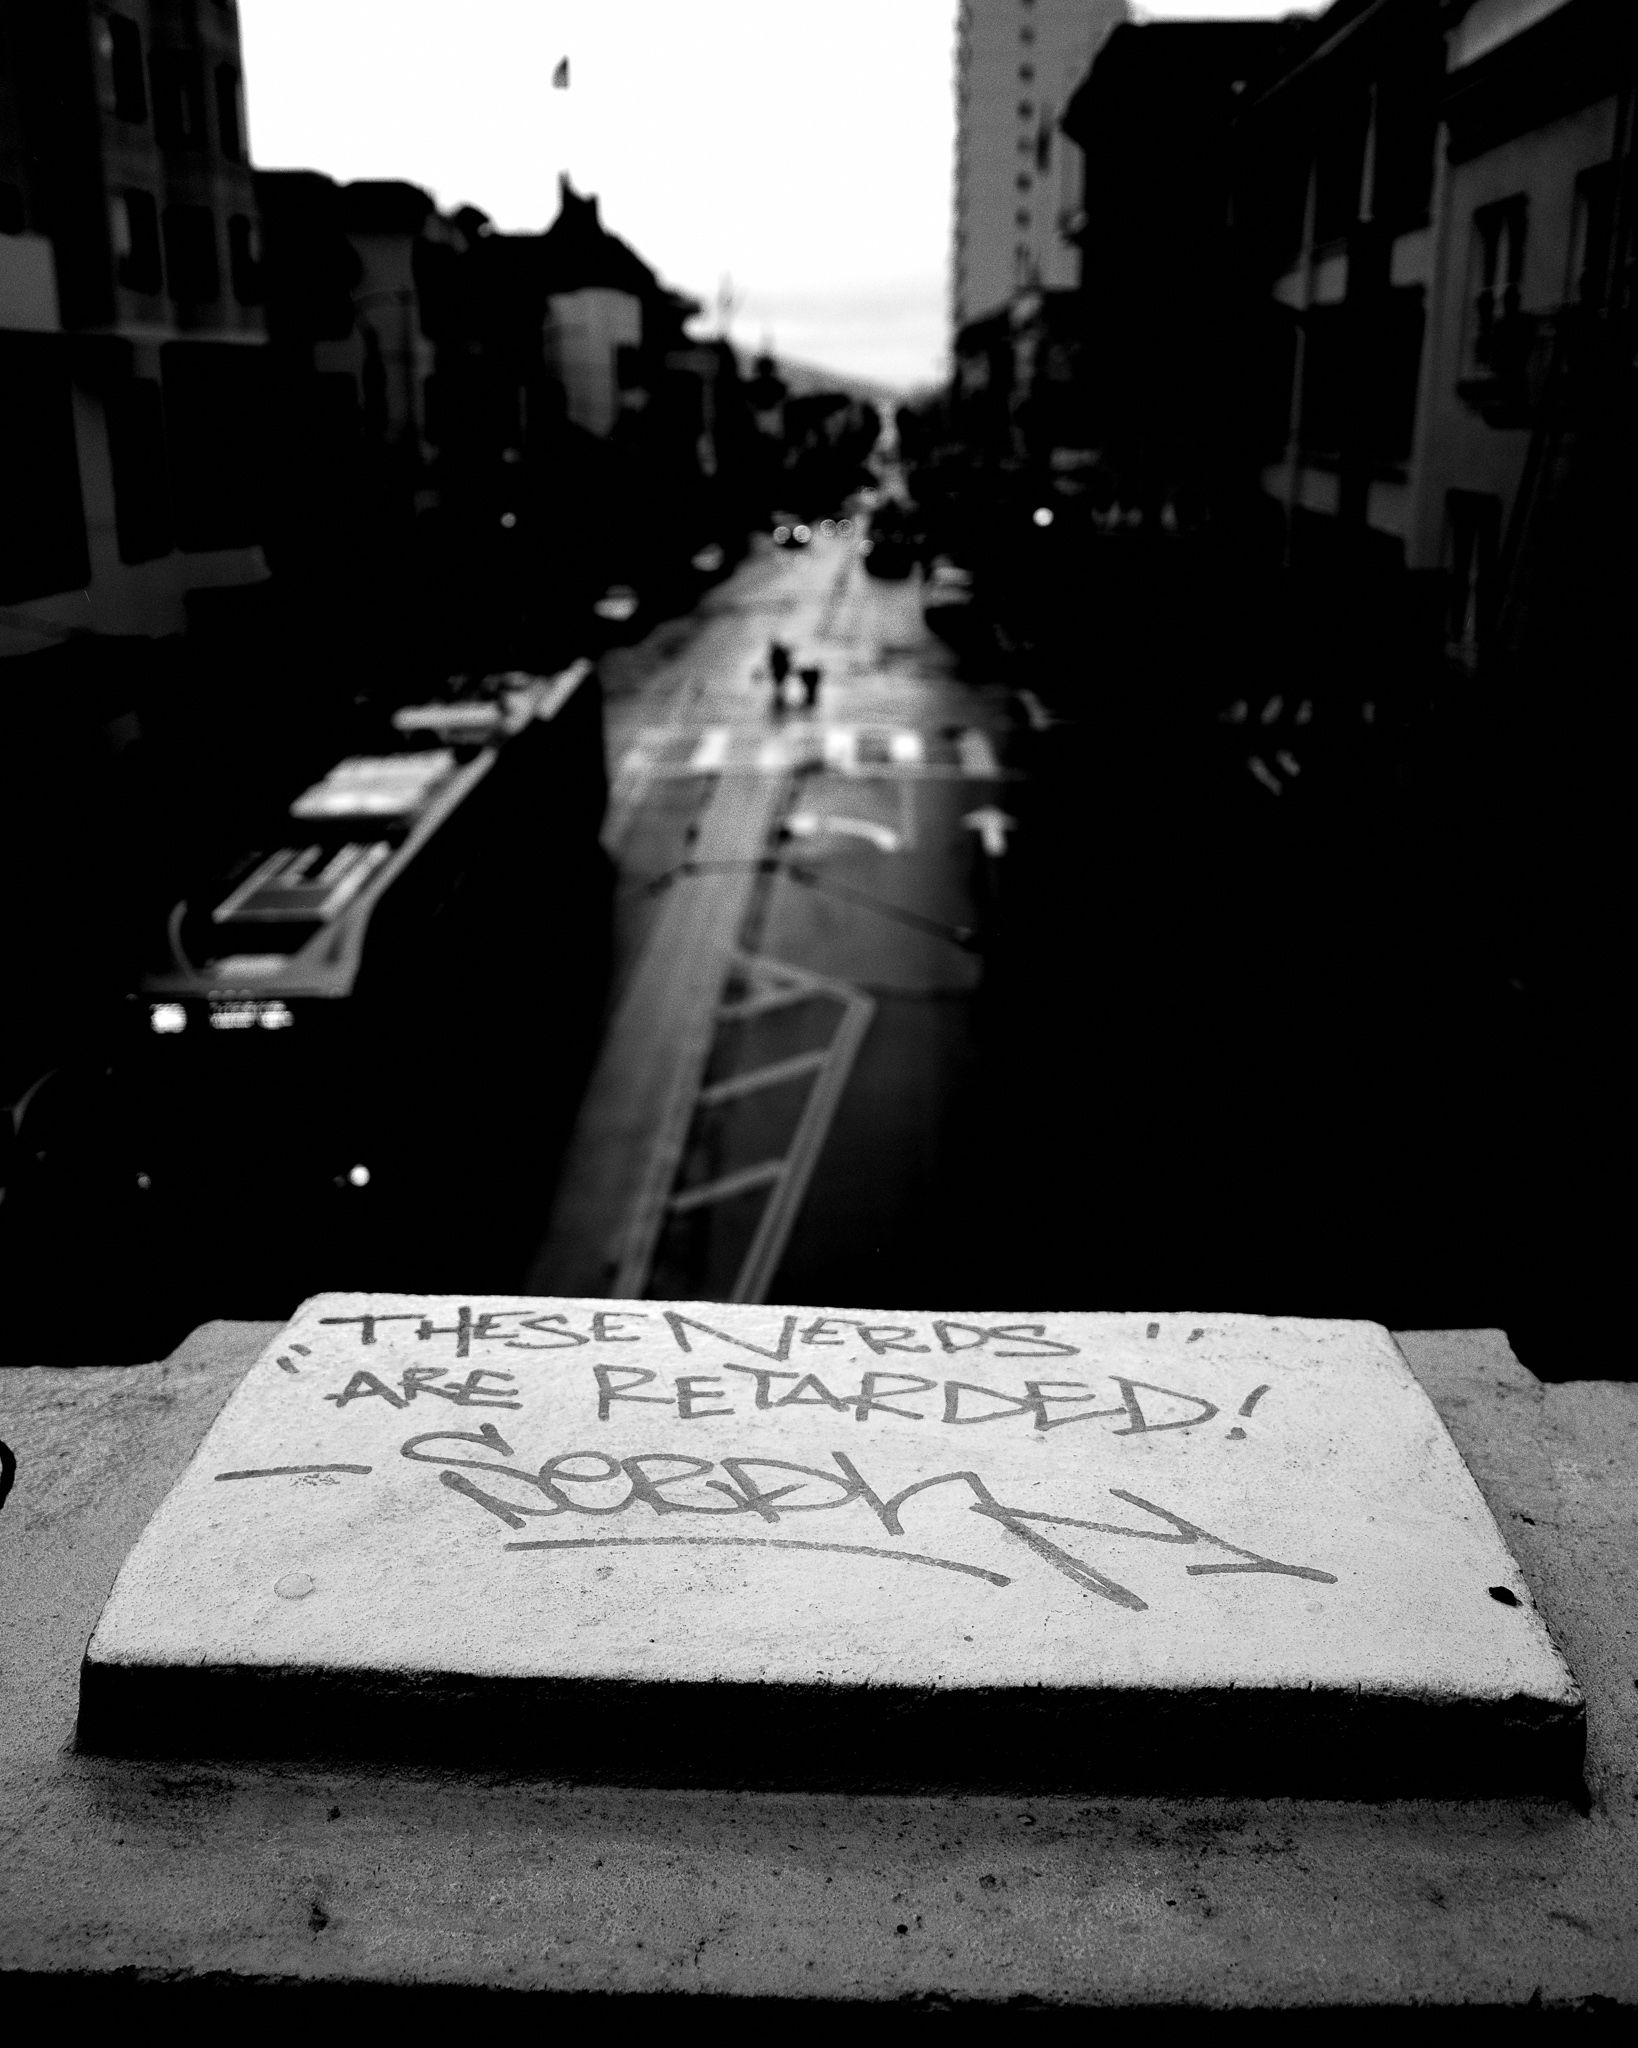 "THESE NERDS"
ARE RETARDED!